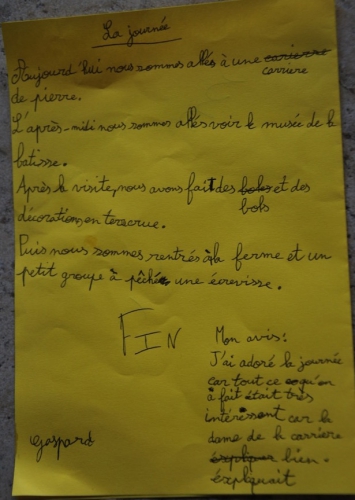 La journée
Aujourd'hui nous sommes allés à une carierre
carriere
de pierre.
L'après-midi nous sommes allés voir le musée de la
batisse.
Après la visite, nous avons fait des bols et des
bols
décoration, en terecrue.
Puis nous sommes rentrés à la ferme et un
petit groupe à pêché une écrevisse.
FIN
Mon avis:
J'ai adoré la journée
car tout ce qu'on
à fait était très
intéressent car la
dame de la carriere
expliquer bien.
éxpliquait
Gaspard